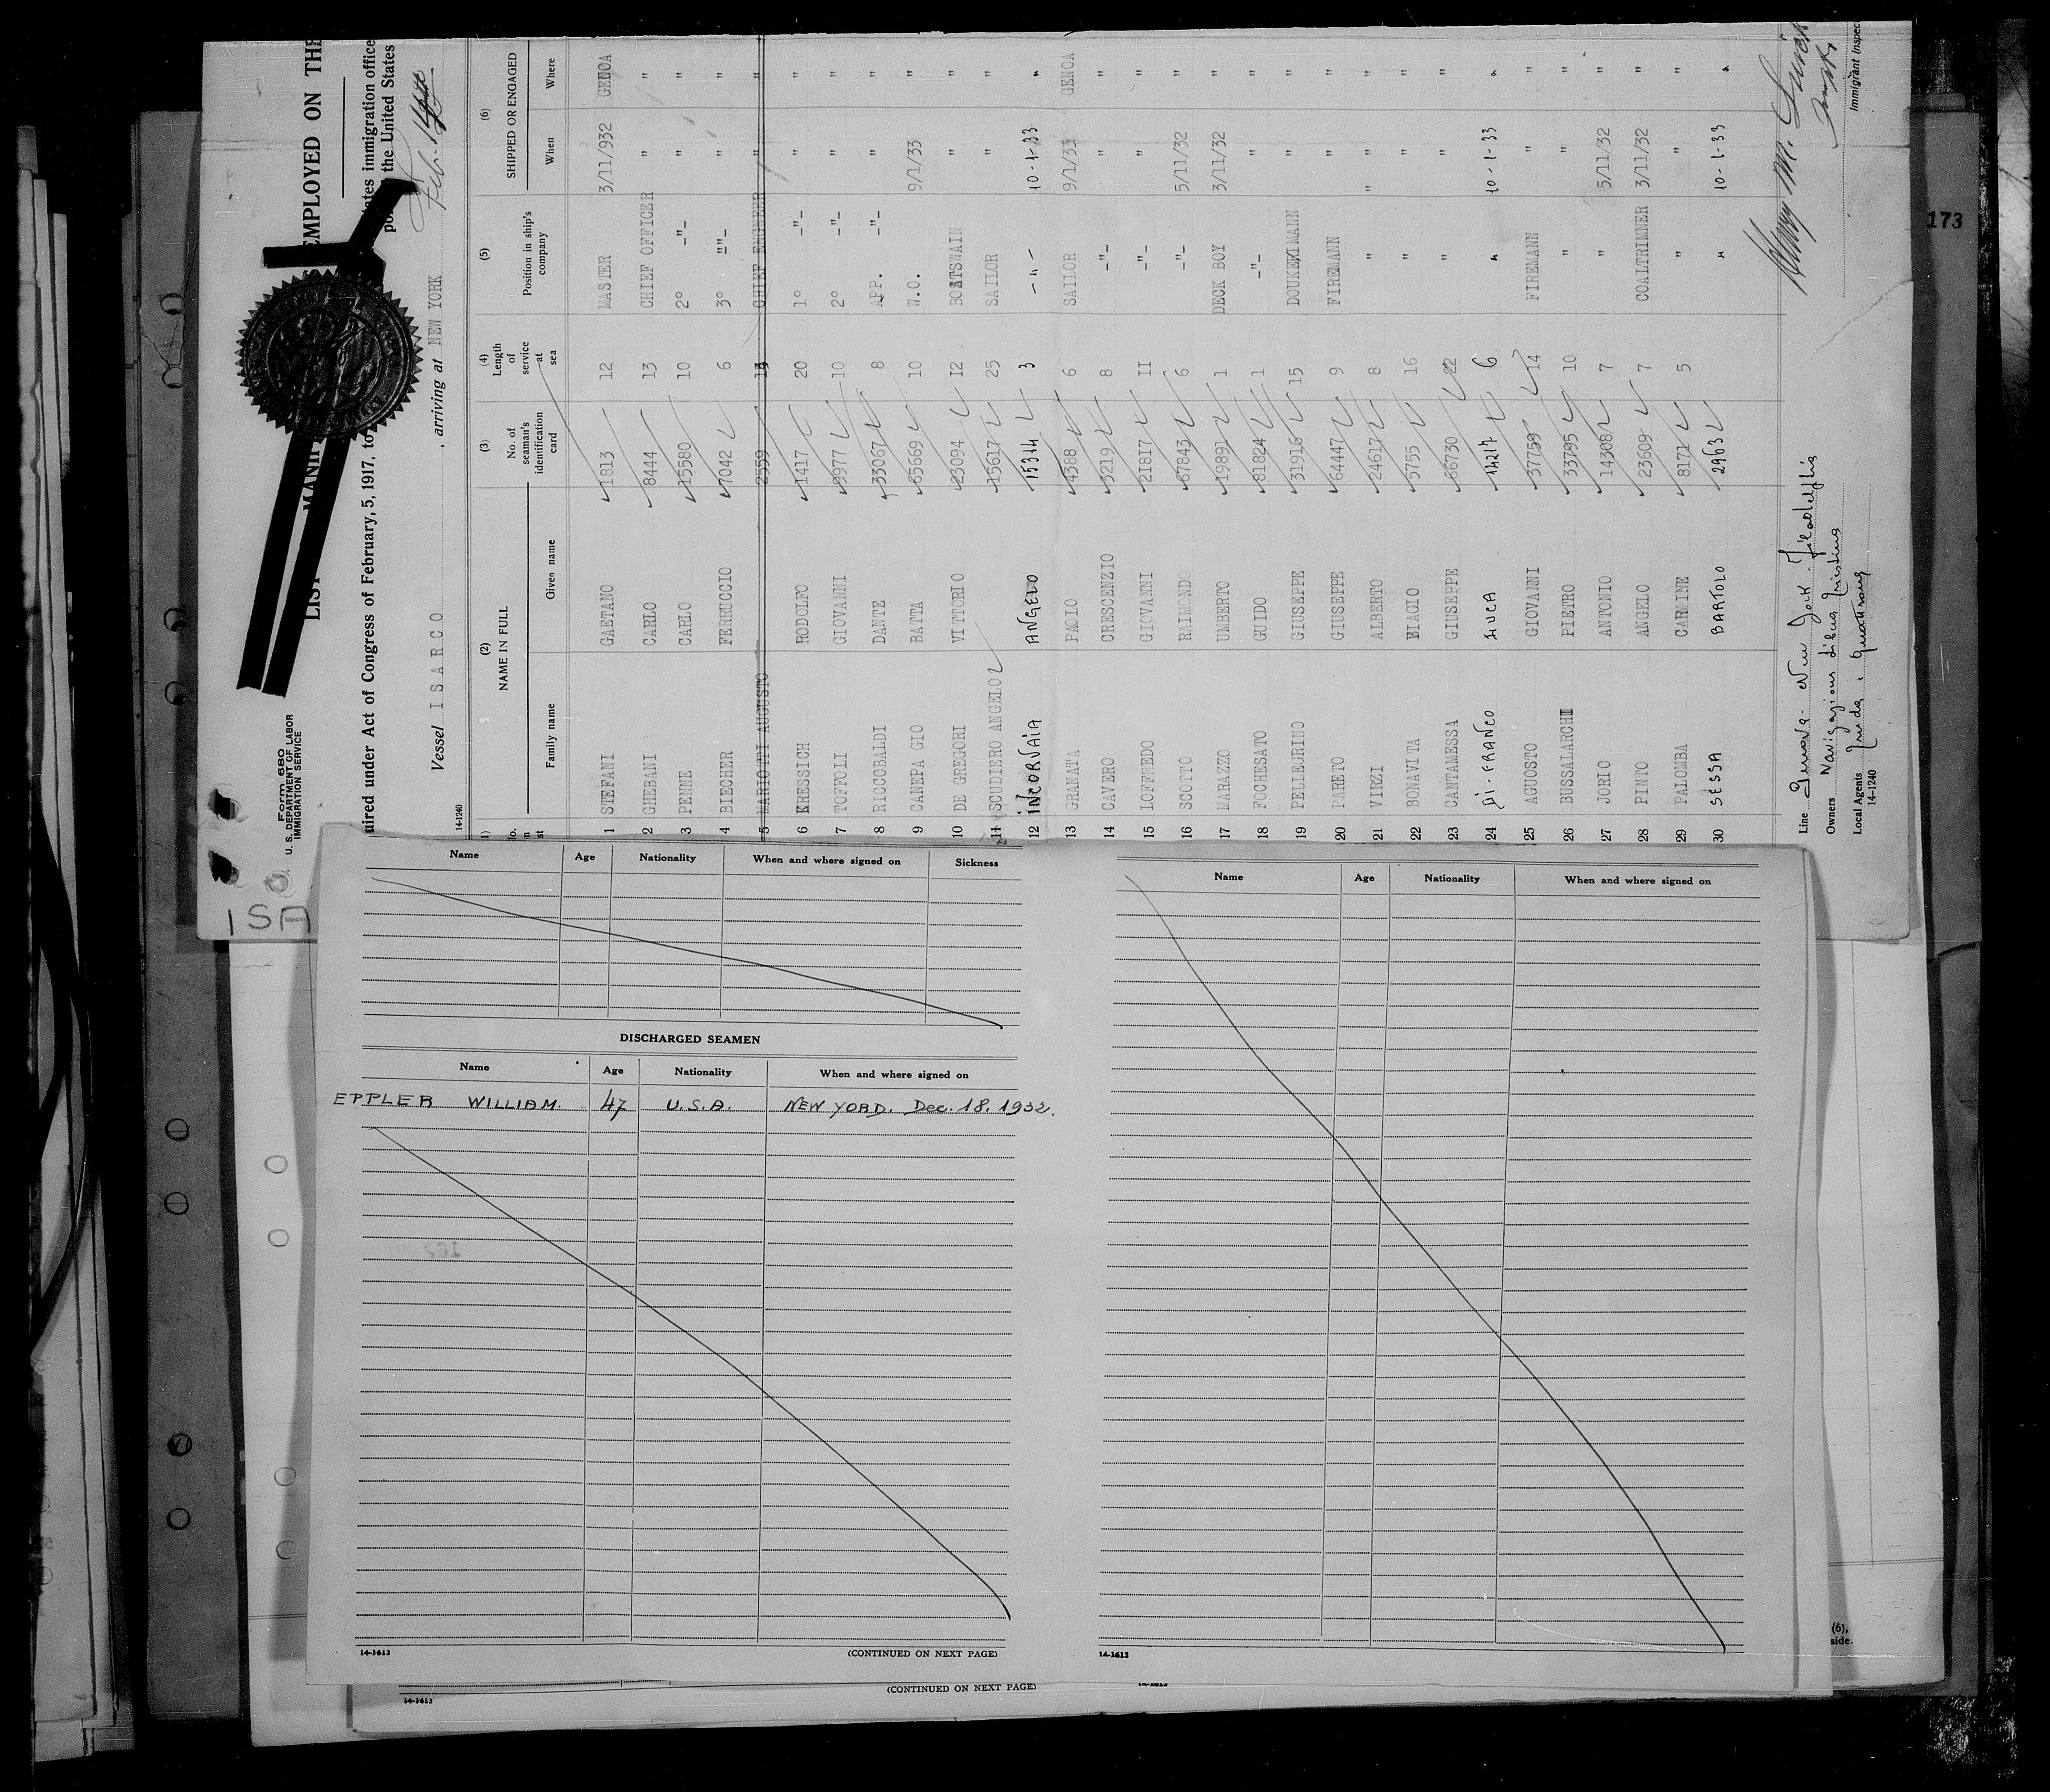 Form 680
U. S. DEPARTMENT OF LABOR
IMMIGRATION SERVICE
EMPLOYED ON THE
uired under Act of Congress of February, 5, 1917, to
ates immigration office
the United States
Vessel I S A R C O , arriving at NEW YORK
14-1240
(2) (3) (4) (5) (6)
NAME IN FULL No. of seaman's identification card Length of service at sea Position in ship's company SHIPPED OR ENGAGED
Family name Given name When Where
1 STEFANI GAETANO 1813 12 MASTER 3/11/932 GENOA
2 GHEBANI CARLO 8444 13 CHIEF OFFICER " "
3 PENNE CARLO 15580 10 2° -"- " "
4 BIECHER FERRUCCIO 7042 6 3° -"- " "
5 MARIOTTI AUGUSTO 2559 14 CHIEF ENGNEER " "
6 KRESSICH RODOLFO 1417 20 1° -"- " "
7 TOFFOLI GIOVANNI 9977 10 2° -"- " "
8 RICCOBALDI DANTE 33067 8 APP. -"- " "
9 CANEPA GIO BATTA 65669 10 W.O. 9/1/33 "
10 DE GREGORI VITTORIO 23094 I2 BOATSWAIN " "
11 SCUDIERO ANGELO 15617 25 SAILOR " "
12 INCORVAIA ANGELO 15314 3 -"- 10-1-33 "
13 GRANATA PAOLO 4388 6 SAILOR 9/1/33 GENOA
14 CAVERO CRESCENZIO 3219 8 -"- " "
15 LOFREDO GIOVANNI 21817 II -"- " "
16 SCOTTO RAIMONDO 67843 6 -"- 5/11/32 "
17 MARAZZO UMBERTO 19891 1 DECK BOY 3/11/32 "
18 FOCHESATO GUIDO 81824 1 -"- " "
19 PELLEGRINO GIUSEPPE 31916 15 DOUKEKIMANN " "
20 PARETO GIUSEPPE 64447 9 FIREMANN " "
21 VINZI ALBERTO 24617 8 " " "
22 BONAVITA BIAGIO 5755 16 " " "
23 CANTAMESSA GIUSEPPE 66730 22 " " "
24 Di-FRANCO LUCA 14217 6 " 10-1-33 "
25 AGUOSTO GIOVANNI 37759 14 FIREMANN " "
26 BUSSALARCHI PIETRO 33795 10 " " "
27 JORIO ANTONIO 14308 7 " 5/11/32 "
28 PINTO ANGELO 23609 7 COALTRIMNER 3/11/32 "
29 PALOMBA CARMINE 8171 5 " " "
30 SESSA BARTOLO 2963 " 10-1-33 "
Line
Owners
Local Agents
14-1240
Immigrant Inspec
173
ISA
Name Age Nationality When and where signed on Sickness
DISCHARGED SEAMEN
Name Age Nationality When and where signed on
EPPLER WILLIAM. 47 U.S.A. NEW YORD. Dec. 18. 1932.
14-1613 (CONTINUED ON NEXT PAGE)
Name Age Nationality When and where signed on
14-1613
14-1613 (CONTINUED ON NEXT PAGE)
(6),
side.